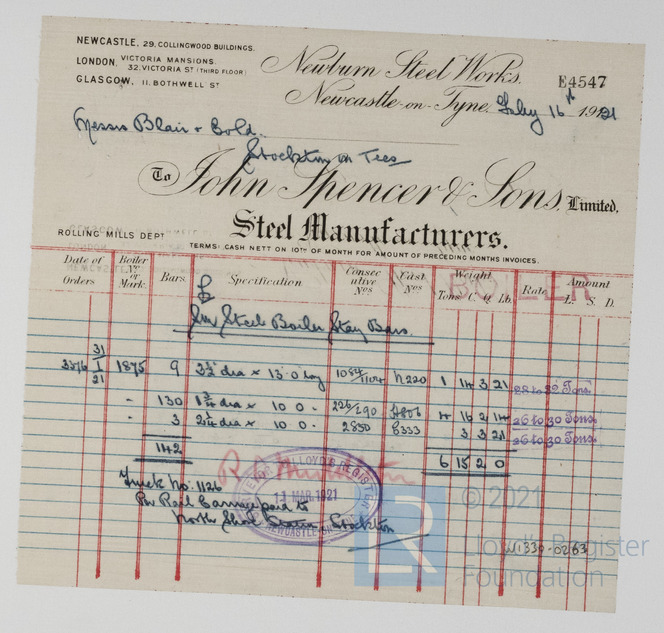 NEWCASTLE, 29, COLLINGWOOD BUILDINGS.
LONDON, VICTORIA MANSIONS. 32, VICTORIA ST (THIRD FLOOR)
GLASGOW, 11, BOTHWELL ST
Newburn Steel Works.
E4547
Newcastle-on-Tyne. Feby 16th 1921
Messrs Blair & Co Ld.
Stockton on Tees
To John Spencer & Sons, Limited.
Steel Manufacturers.
ROLLING MILLS DEPT
TERMS: CASH NETT ON 10TH OF MONTH FOR AMOUNT OF PRECEDING MONTHS INVOICES.
Date of Orders Boiler No or Mark. Bars. Specification Consecutive Nos Cast Nos Weight Tons C. Q. Lb. Rate Amount L. S. D.
BOILER
Steel Boiler Stay Bars
3376 31/1/21 1875 9 dia x 13.0 long 1084/1104 1 14 3 21 28 to 32 Tons.
" 130 1¾ dia x 10 0 " 226/290 4 16 2 14 26 to 30 Tons.
" 3 dia x 10 0 " 2830 3 3 21 26 to 30 Tons.
142 6 15 2 0
Truck No. 1126
Per Rail Carriage paid to
North Shore Station Stockton
LLOYD'S REGISTER
11 MAR 1921
NEWCASTLE-ON-TYNE
W1330-0263
LR
© 2021
Lloyd's Register
Foundation